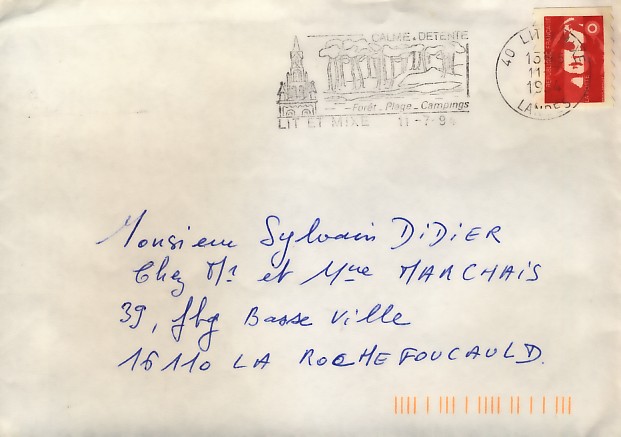 CALME - DETENTE
Forêt - Plage - Campings
LIT ET MIXE 11-7-9
40 LIT
11
19
LANDES
Monsieur Sylvain DIDIER
Chez Mr et Mme MARCHAIS
39, fbg Basse Ville
16110 LA ROCHEFOUCAULD.